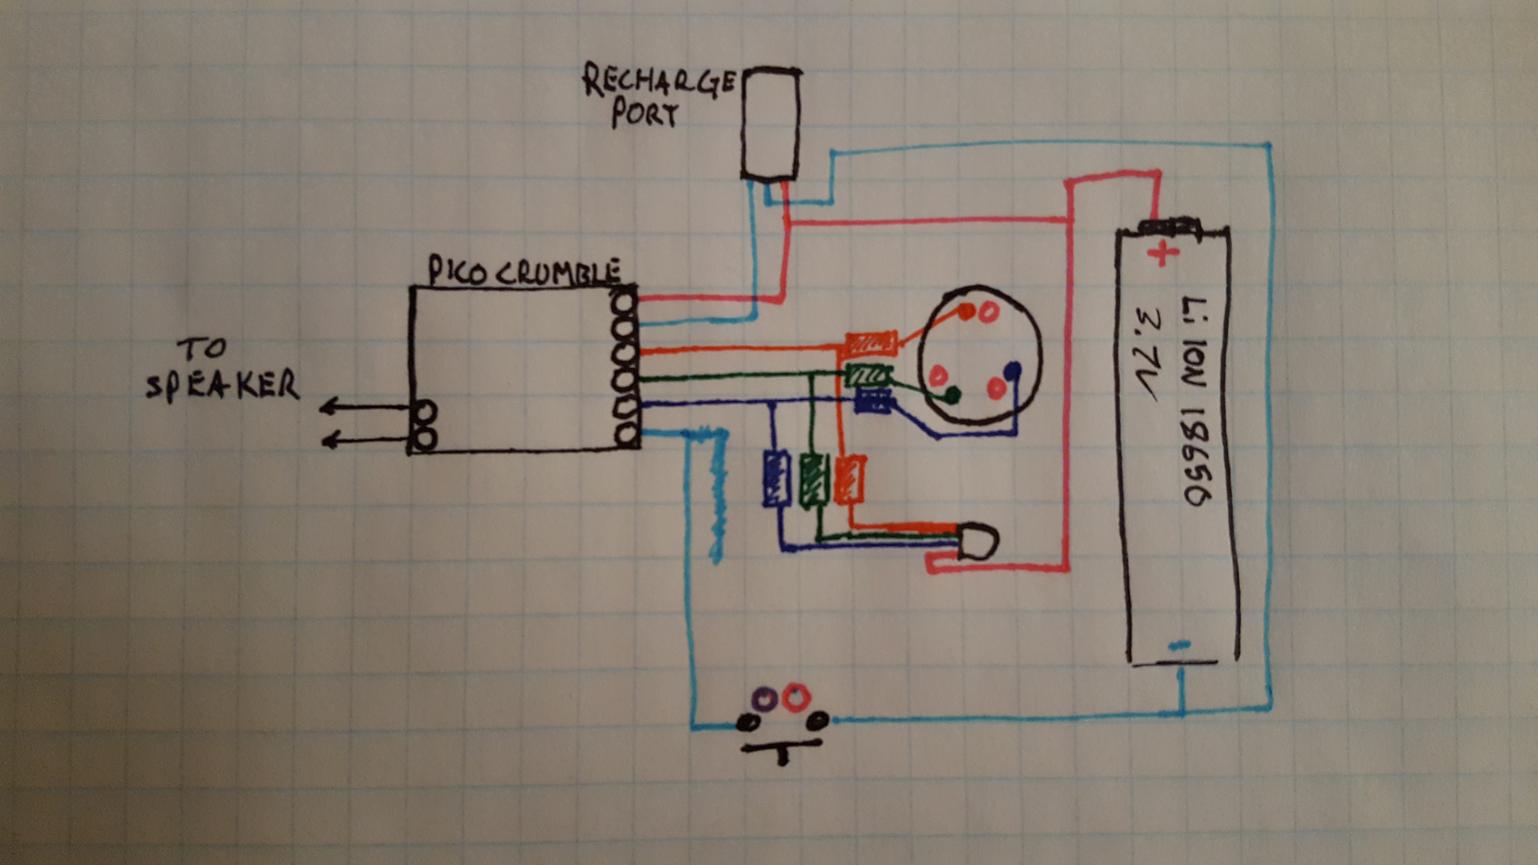 RECHARGE
PORT
PICO CRUMBLE
TO
SPEAKER
+
Li ION 18650
3.7V
-